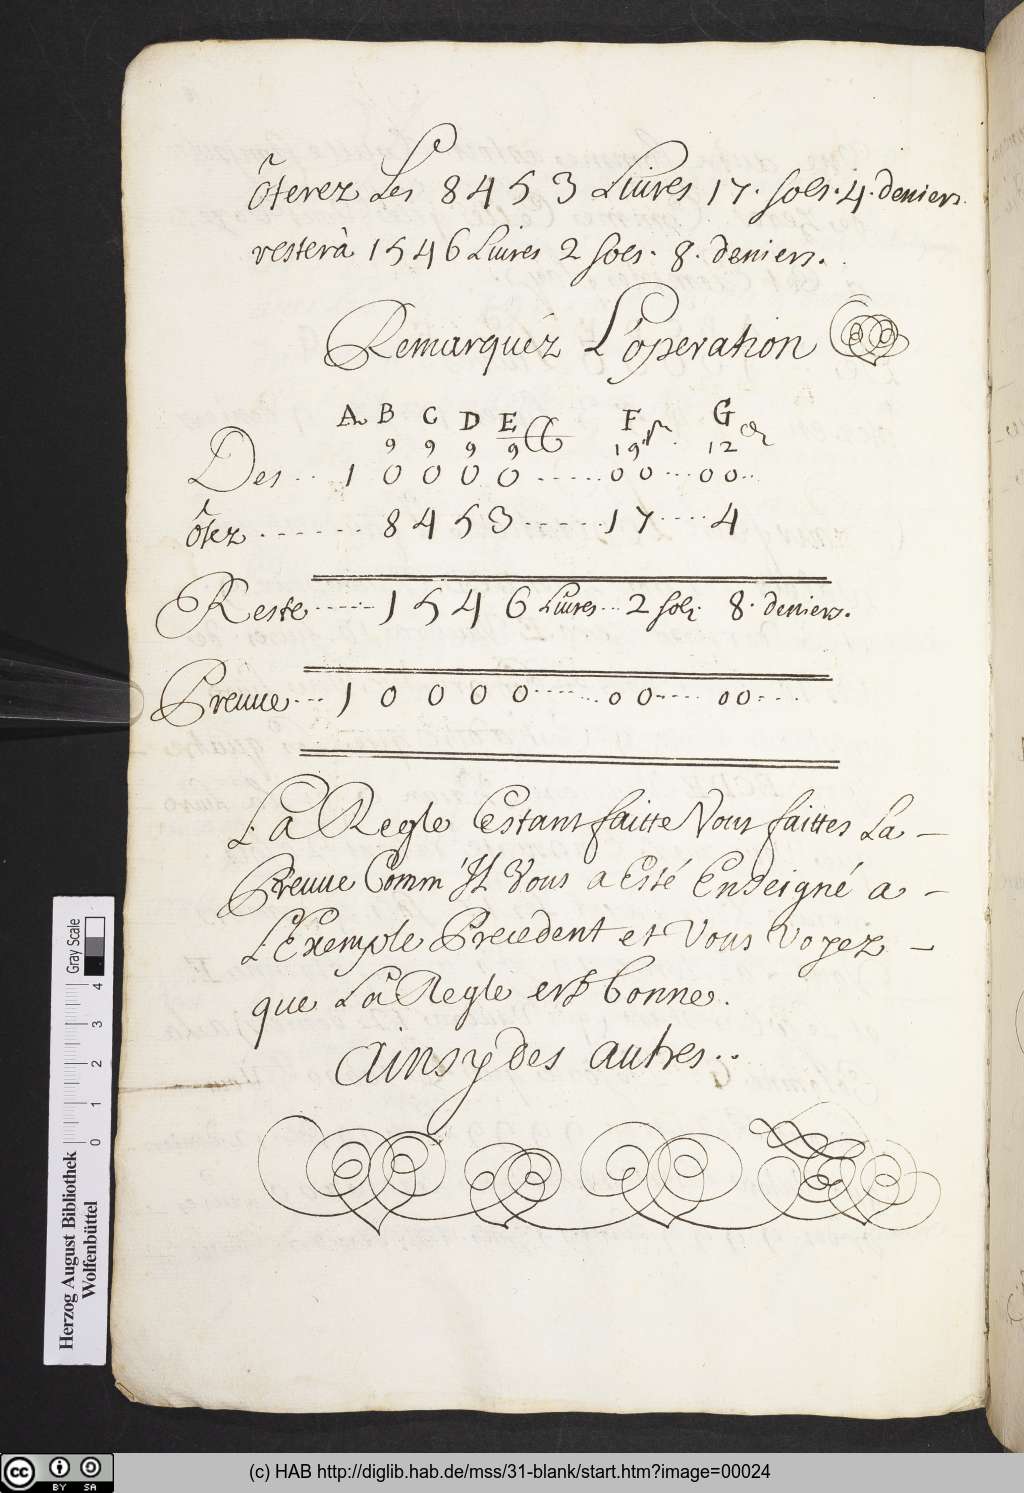 ôterez Les 8453 Liures 17. sols. 4. deniers
resterà 1546 Liures 2 sols. 8. deniers.
Remarquéz L'operation
A B C D E F G
9 9 9 9 19 12
Des ... 1 0 0 0 0 ...... 00 .... 00 ..
ôtez ....... 8 4 5 3 ...... 17 .... 4
Reste ..... 1 5 4 6 Liures .. 2 sols 8. deniers.
Preuue ... 1 0 0 0 0 ..... 00 ..... 00 ....
La Regle Estant faitte Vous faittes La –
Preuue Comm' Il Vous a Esté Enseigné a –
L'Exemple Precedent et Vous Voyez –
que La Regle est bonne.
Ainsy des autres..
Gray Scale
0 1 2 3 4
Herzog August Bibliothek
Wolfenbüttel
cc BY SA
(c) HAB http://diglib.hab.de/mss/31-blank/start.htm?image=00024